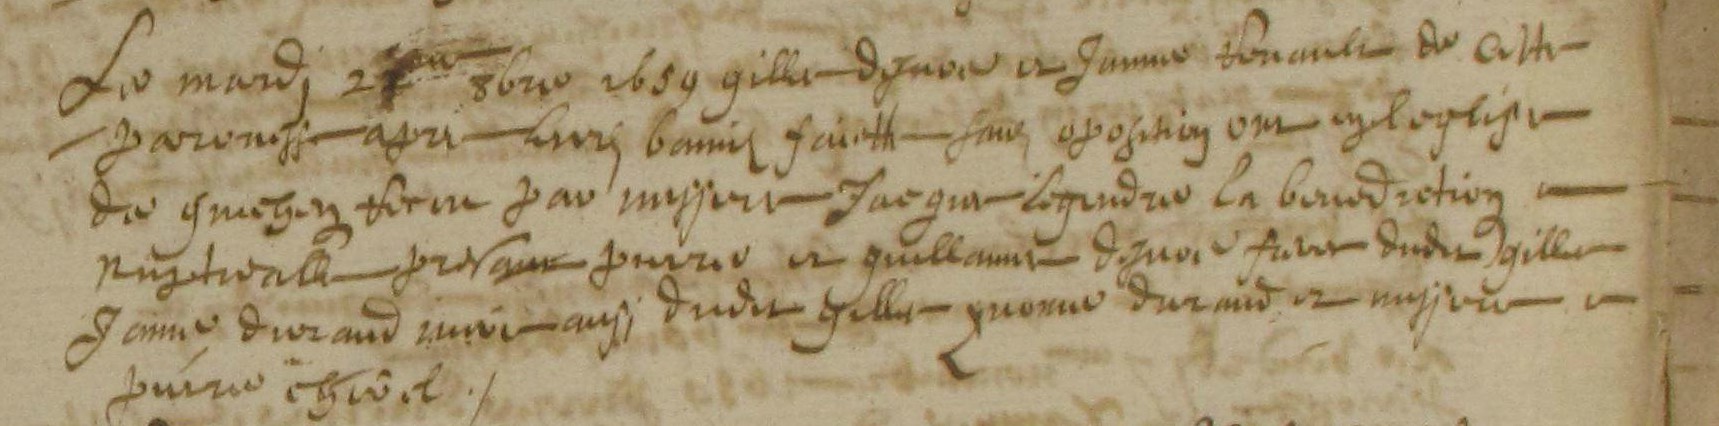 Le mardj 2 8bre 1659 gille dynoe et Janne Renault de cette
paroiesse apre leurs bannis faictte sans oposition ont en leglise
de guichen receu par missere Jacque legendre la benediction
nuptialle presant pierre et guillaume dynoe frere dudit gille
Janne durand mere aussj dudit gille yvonne durand et missere
pierre chevel ./